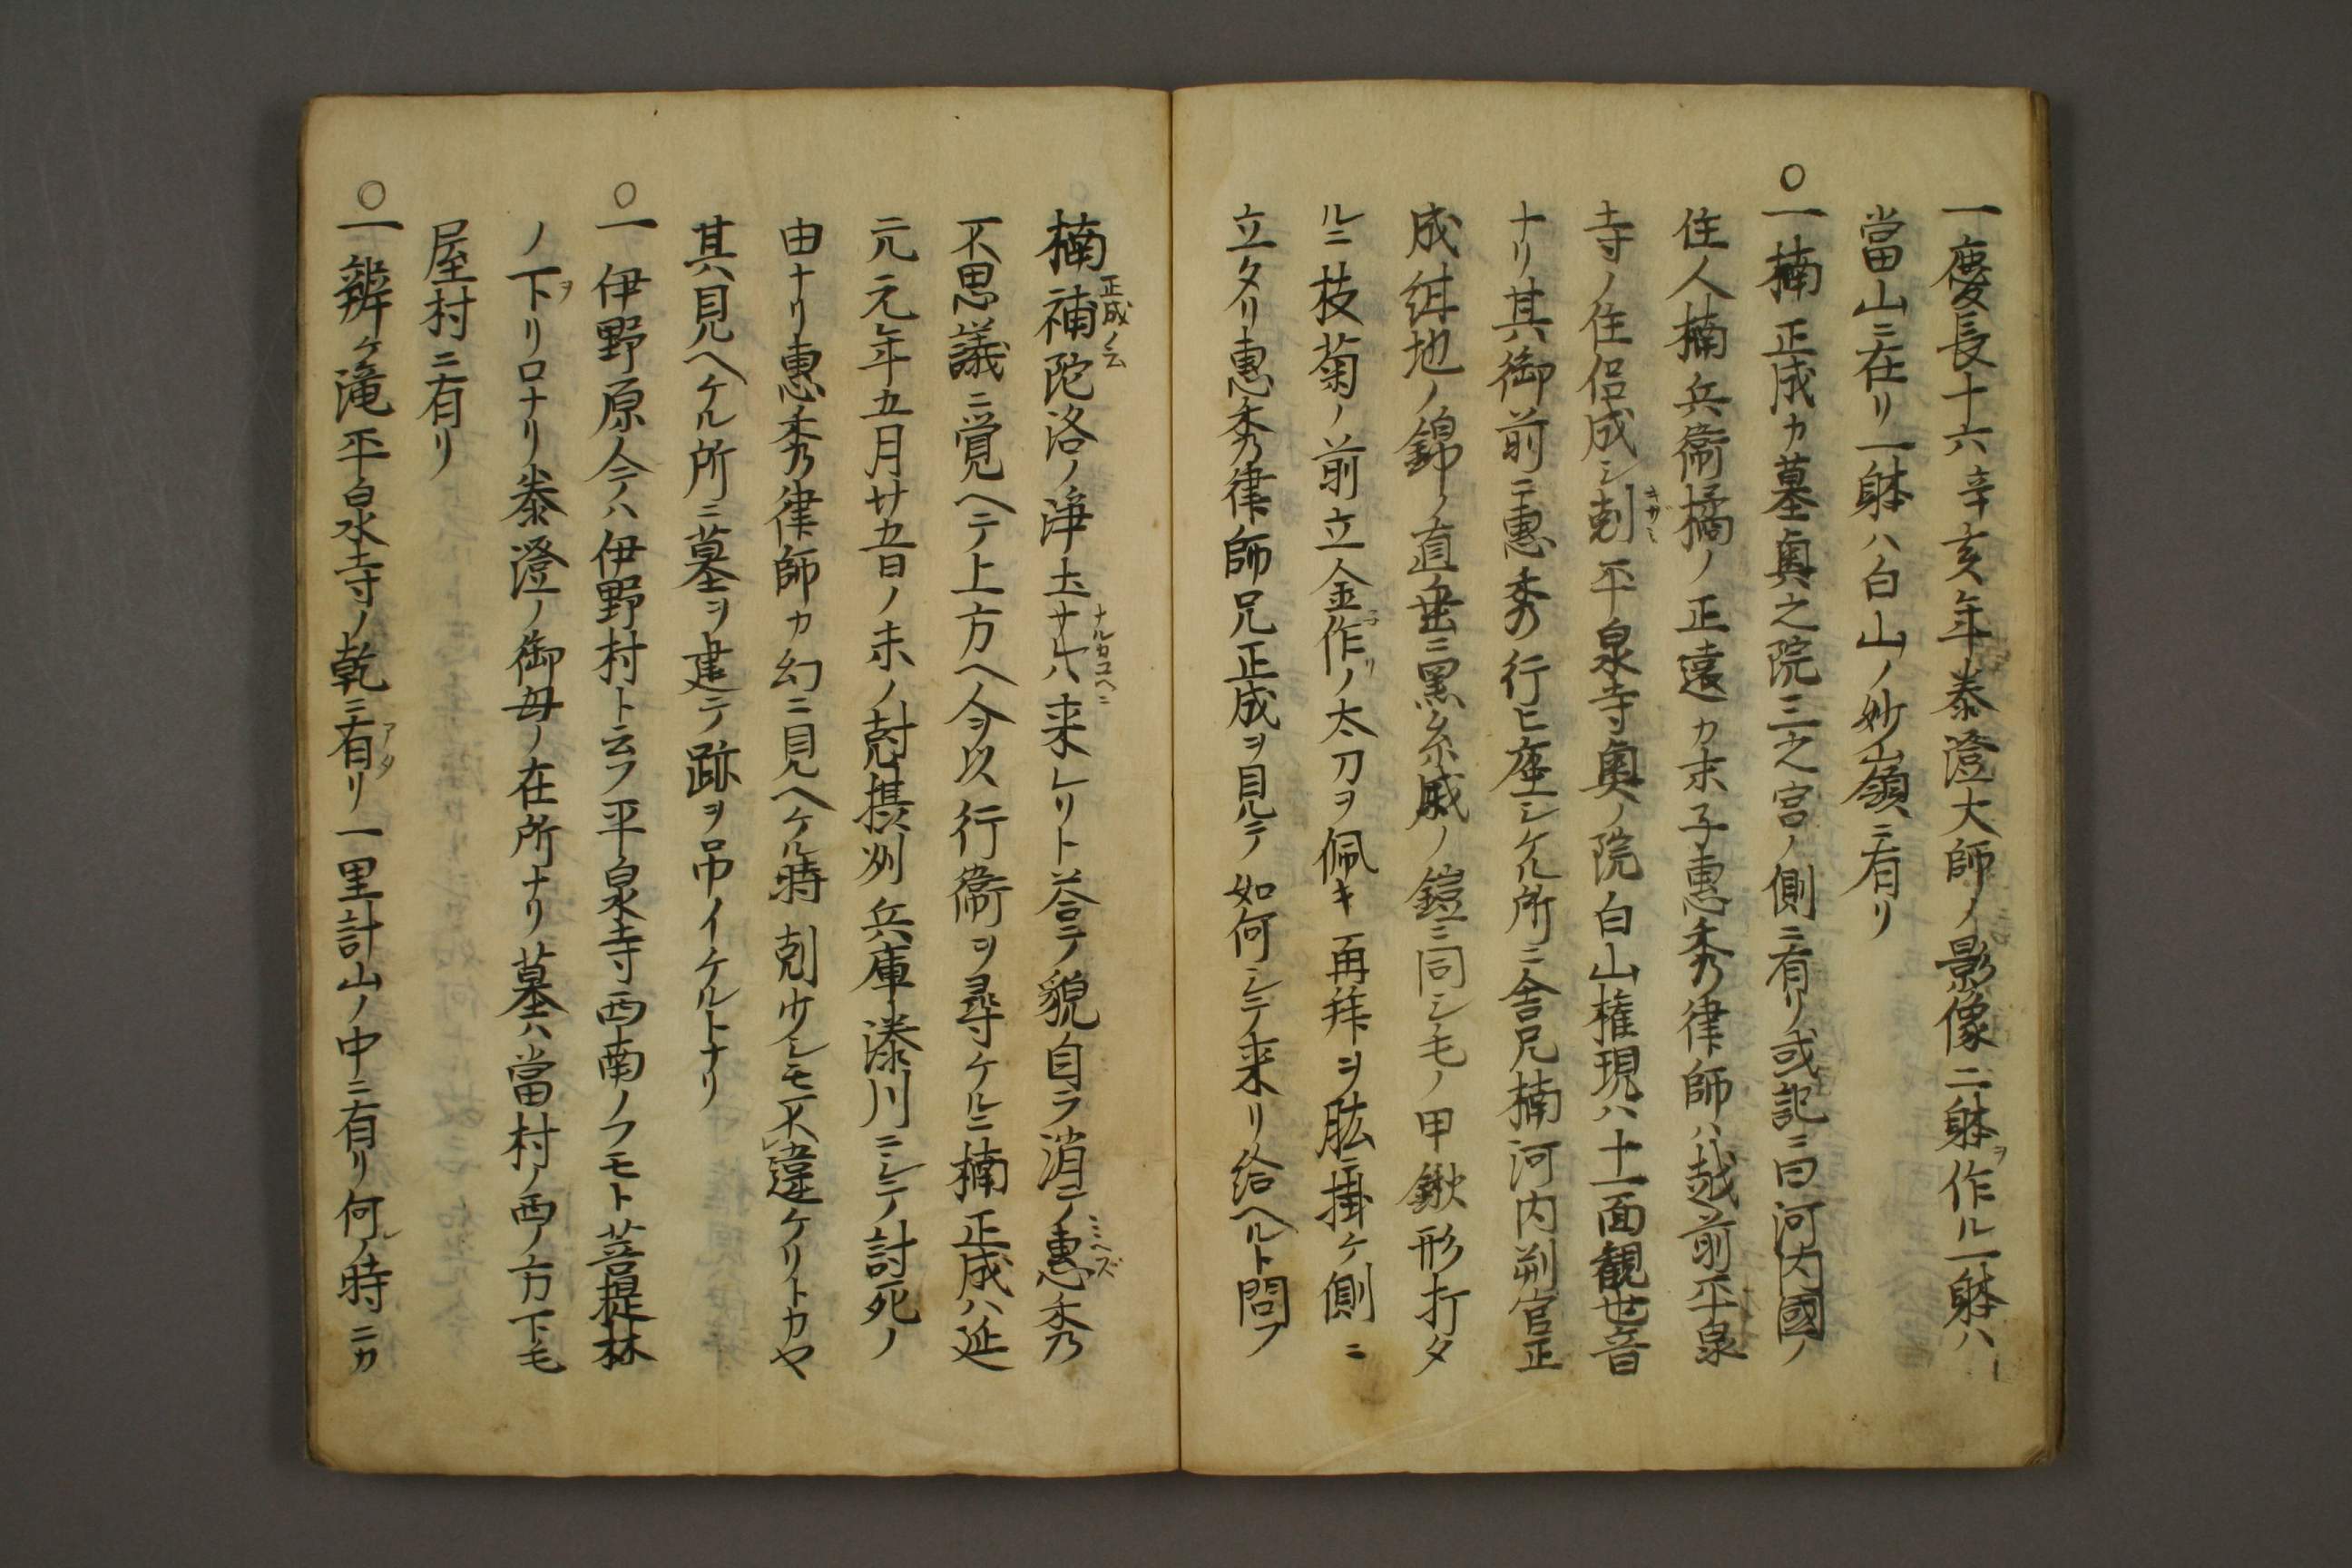 一慶長十六辛亥年泰澄大師ノ影像二躰ヲ作ル一躰ハ
當山ニ在リ一躰ハ白山ノ妙嶺ニ有リ
〇一楠正成カ墓奥之院三之宮ノ側ニ有リ或記ニ曰河内國ノ
住人楠兵衞橘ノ正遠カ末子惠秀律師ハ越前平泉
寺ノ住侶成シ剋キザミ平泉寺奥ノ院白山権現ハ十一面観世音
ナリ其御前ニ惠秀行ヒ座シケル所ニ舎兄楠河内判官正
成絓地ノ錦ノ直垂ニ黒糸威ノ鎧ニ同シ毛ノ甲鍬形打タ
ルニ枝菊ノ前立金作リノ太刀ヲ佩キ再拜ヲ肱ニ掛ケ側ニ
立タリ惠秀律師兄正成ヲ見テ如何シテ来リ給ヘルト問フ
楠正成ノ云補陀洛ノ浄土ナルカユヘニ来レリト答テ貌自ラ消テ不見ミヘズ惠秀
不思議ニ覚ヘテ上方ヘ令ヲ以行衞ヲ尋ケルニ楠正成ハ延
元元年五月廿五日ノ未ノ尅摂刕兵庫ノ湊川ニシテ討死ノ
由ナリ惠秀律師カ幻ニ見ヘケル時剋少シモ不違ケリトカヤ
其見ヘケル所ニ墓ヲ建テ跡ヲ吊イケルトナリ
〇一伊野原今ハ伊野村ト云フ平泉寺西南ノフモト菩提林
ノ下ヲリ口ナリ泰澄ノ御母ノ在所ナリ墓ハ當村ノ西ノ方下毛
屋村ニ有リ
〇一辨ヶ滝平泉寺ノ乾ニ有アタリ一里計山ノ中ニ有リ何ノ時ニカ